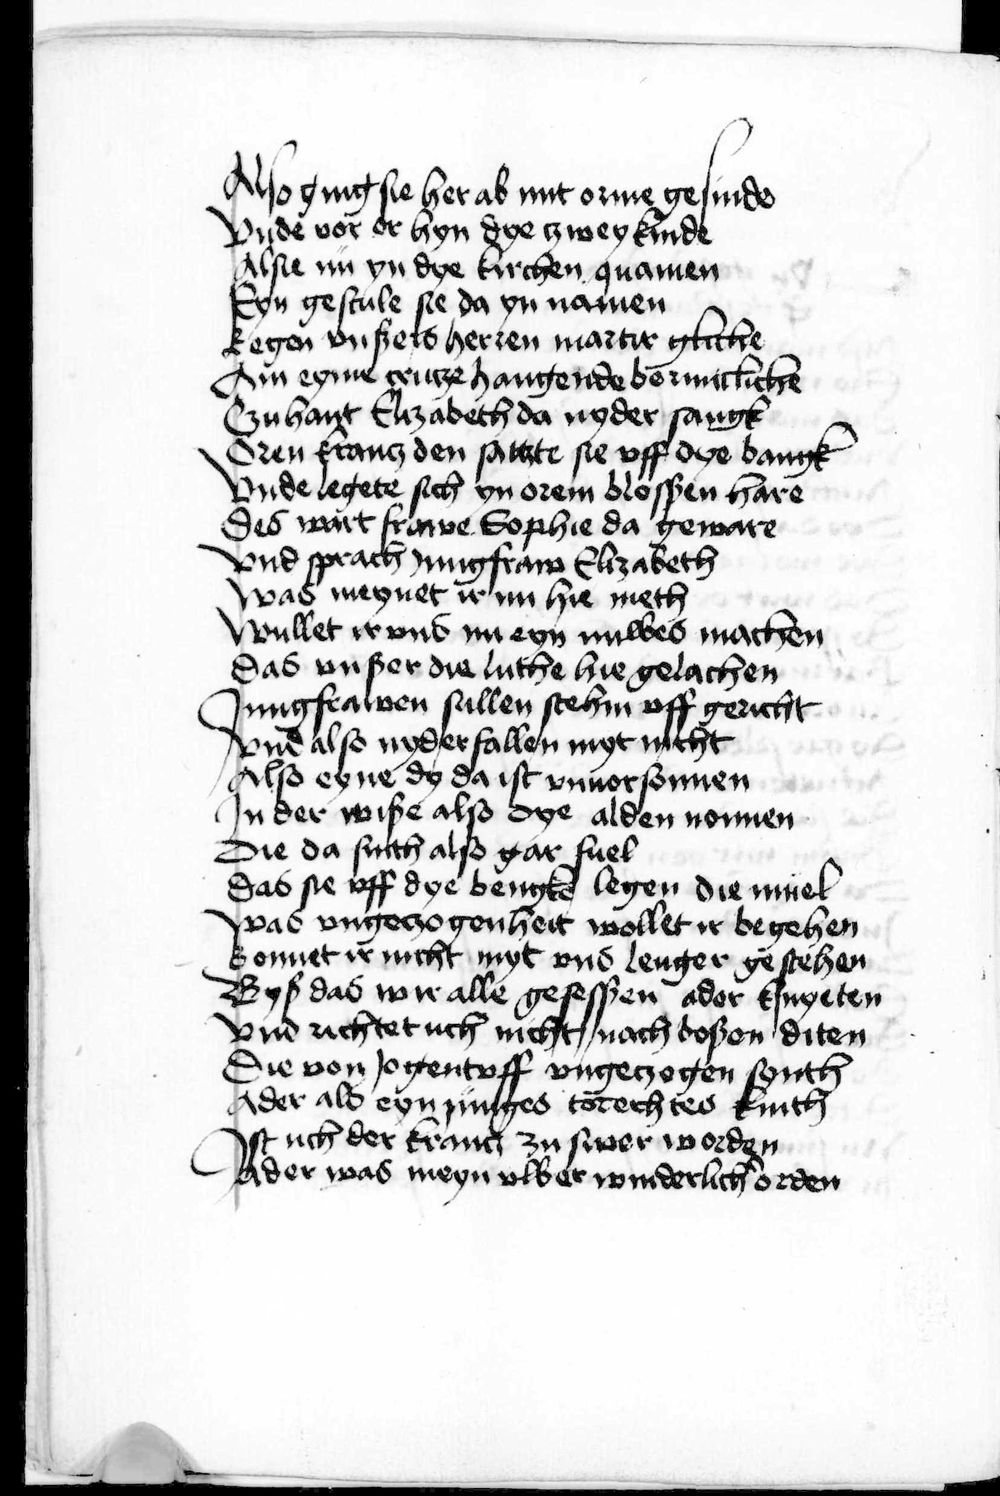 Also ging sie her ab mit orme gesinde
Vnde vor or hyn dye czwey kinde
Alsie nu yn dye kirchen quamen
Eyn gestule sie da yn namen
kegen vnszers herren martir gliche
Am eyme crucze hangende bormicliche
Czu hant Elizabeth da nyder sangk
Oren krancz den satzte sie vff dye bangk
Vnde legete sich yn orem blosszen hare
Des wart frawe Sophie da geware
Vnd sprach Jungfraw Elizabeth
Was meynet ir nu hie meth
Wullet ir vns nu eyn nulbes machen
Das vnszer die luthe hie gelachen
Jungfrawen sullen stehin vff gericht
Vnd also nyderfallen myt nicht
Also eyne dy da ist vnuorsonnen
In der wisze also dye alden nonnen
Die da sinth also gar fuel
Das sie vff dye bengke legen die muel
Was vngeczogenheit wollet ir begehen
konnet ir nicht myt vns lenger gestehen
Bysz das wir alle gesesszen ader knyeten
Vnd richtet uch nicht nach boszen diten
Die von Jogent vff vngeczogen synth
Ader als eyn junges torechtes kinth
Ist uch der krancz zu swer worden
Ader was meyn vlber wunderlich orden